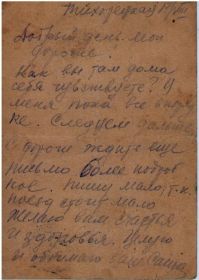 Тихорецкая
Добрый день мои
дорогие.
Как вы там дома
себя чувствуете? У
меня пока все в поряд
ке. Следуем дальше.
С дороги ждите еще
письмо более подроб
ное. Пишу мало, т.к.
поезд стоит мало
желаю вам счастья
и здоровья. Целую
и обнимаю Ваш